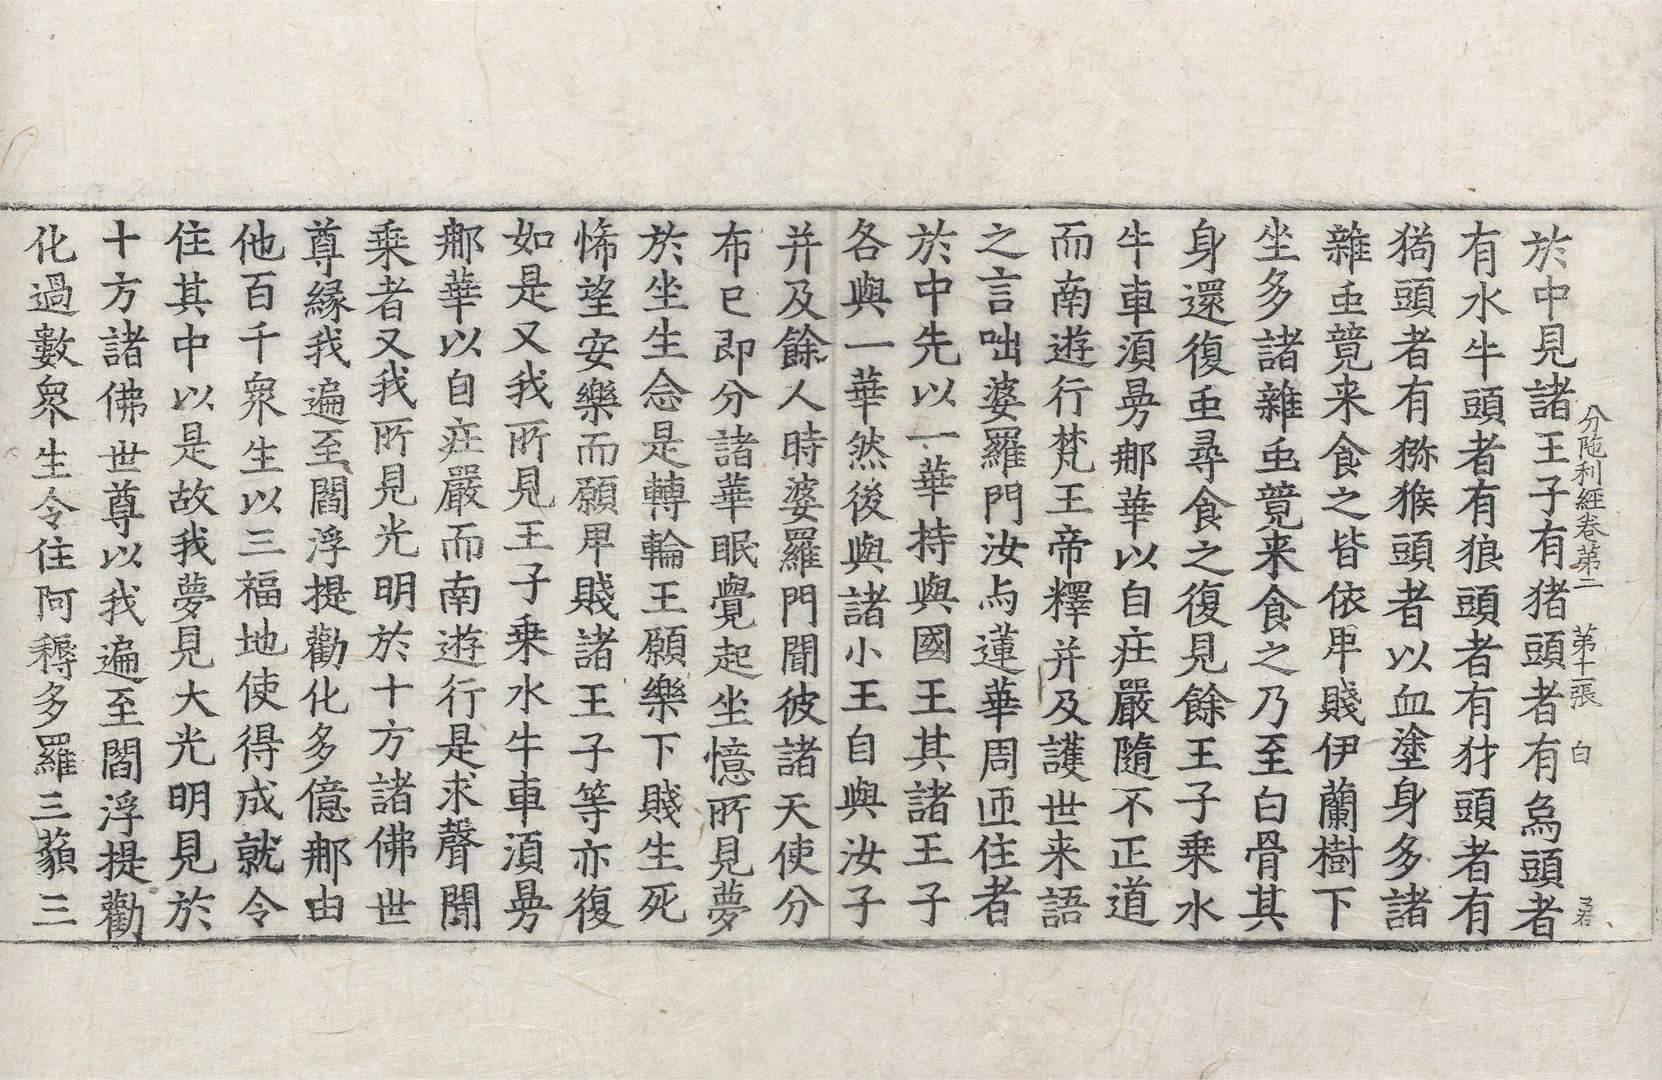 分陁利經卷第二　第十一張　白
於中見諸王子有猪頭者有烏頭者
有水牛頭者有狼頭者有犲頭者有
猗頭者有猕猴頭者以血塗身多諸
雜䖝竟来食之皆依卑賤伊蘭樹下
坐多諸雜䖝竟来食之乃至白骨其
身還復䖝尋食之復見餘王子乗水
牛車湏㬅那華以自庄嚴隨不正道
而南遊行梵王帝釋并及護世来語
之言咄婆羅門汝与蓮華周迊住者
於中先以一華持與國王其諸王子
各與一華然後與諸小王自與汝子
并及餘人時婆羅門聞彼諸天使分
布已即分諸華眠覺起坐憶所見夢
於坐生念是轉輪王願樂下賤生死
悕望安樂而願卑賤諸王子等亦復
如是又我所見王子乗水牛車湏㬅
那華以自庄嚴而南遊行是求聲聞
乗者又我所見光明於十方諸佛世
尊緣我遍至閻浮提勸化多億那由
他百千衆生以三福地使得成就令
住其中以是故我夢見大光明見於
十方諸佛世尊以我遍至閻浮提勸
化過數衆生令住阿耨多羅三藐三